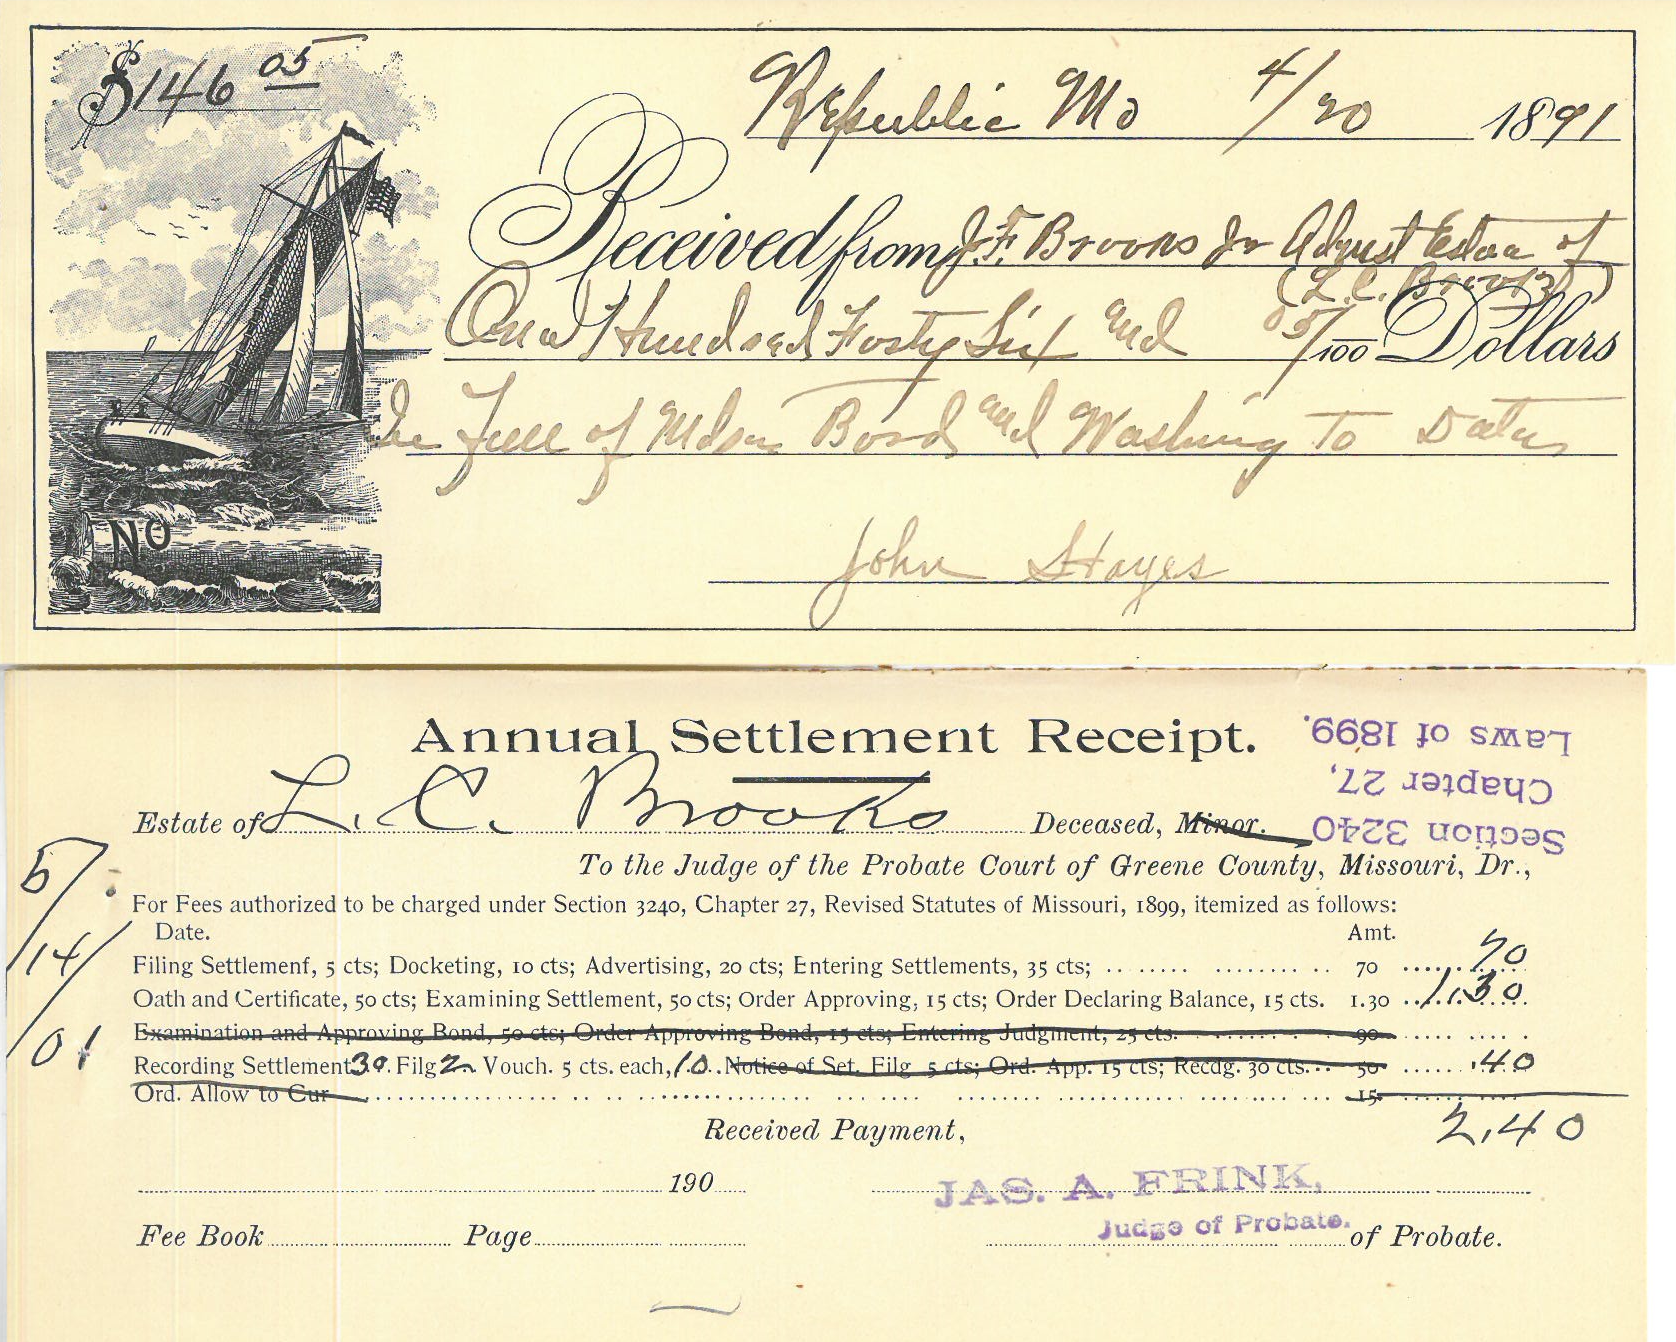 $146 05
Republic Mo 4/20 1891
Received from J.F. Brooks Jr Admst Estae of
(L.C. Brooks)
One Hundred Forty Six and 05/100 Dollars
In Full of Board and Washing To Date
No
John Hayes
Annual Settlement Receipt.
Laws of 1899.
Chapter 27,
Section 3240
Estate of L. C. Brooks Deceased, Minor.
To the Judge of the Probate Court of Greene County, Missouri, Dr.,
5/14/01
For Fees authorized to be charged under Section 3240, Chapter 27, Revised Statutes of Missouri, 1899, itemized as follows:
Date. Amt.
Filing Settlemenf, 5 cts; Docketing, 10 cts; Advertising, 20 cts; Entering Settlements, 35 cts; 70 70
Oath and Certificate, 50 cts; Examining Settlement, 50 cts; Order Approving, 15 cts; Order Declaring Balance, 15 cts. 1.30 1.30
Examination and Approving Bond, 50 cts; Order Approving Bond, 15 cts; Entering Judgment, 25 cts. 90
Recording Settlement 30. Filg 2 Vouch. 5 cts. each, 10. Notice of Set. Filg 5 cts; Ord. App. 15 cts; Recdg. 30 cts. 50 .40
Ord. Allow to Cur 15
Received Payment, 2,40
190 JAS. A. FRINK,
Judge of Probate.
Fee Book Page of Probate.